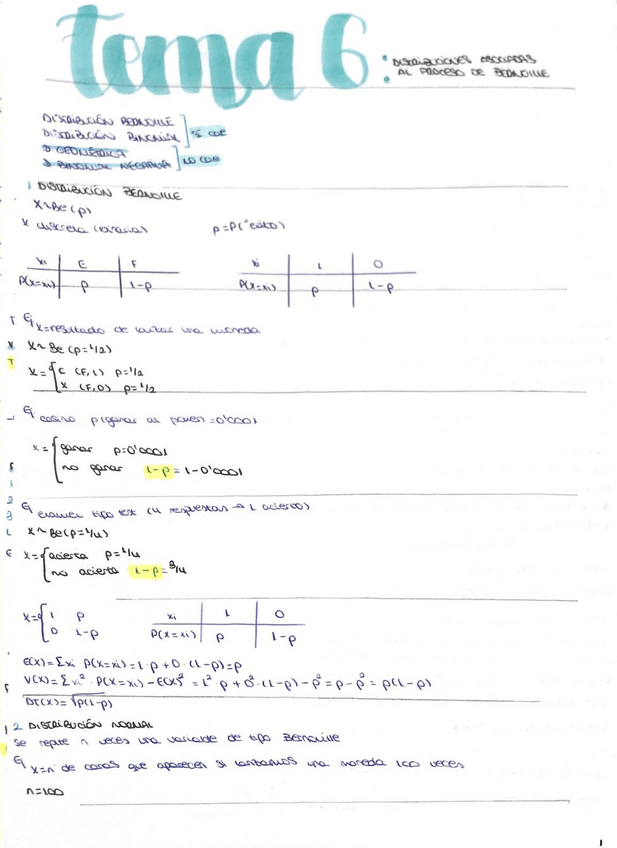 tema 6: DISTRIBUCIONES ASOCIADAS
AL PROCESO DE BERNOUILLE
DISTRIBUCIÓN BERNOUILLE
DISTRIBUCIÓN BINOMIAL
D GEOMÉTRICA
D BINOMIAL NEGATIVA
1 DISTRIBUCIÓN BERNOUILLE
X~Be(p)
X discreta (binaria) p=P("éxito)
xi E F
P(X=xi) p 1-p
xi 1 0
P(X=xi) p 1-p
Ej x=resultado de lanzar una moneda
X~Be(p=1/2)
X={C (E,1) p=1/2
X (F,0) p=1/2
Ej casino p(ganar al =0'0001
X={ganar p=0'0001
no ganar 1-p=1-0'0001
Ej examen tipo test (4 respuestas → 1 acierto)
X~Be(p=1/4)
X={acierta p=1/4
no acierta 1-p=3/4
X={1 p
0 1-p
xi 1 0
P(X=xi) p 1-p
E(X)=Σxi·P(X=xi)=1·p+0·(1-p)=p
V(X)=Σxi²·P(X=xi)-E(X)²=1²·p+0²·(1-p)-p²=p-p²=p(1-p)
DT(X)=√p(1-p)
2 DISTRIBUCIÓN NORMAL
Se repite n veces una variable de tipo Bernouille
Ej x=nº de caras que aparecen si lanzamos una moneda 100 veces
n=100
1